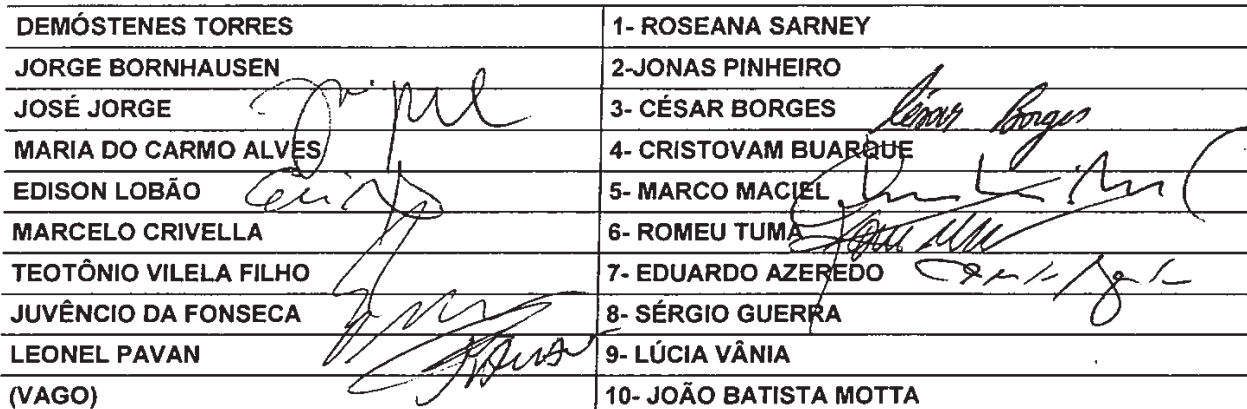 DEMÓSTENES TORRES 1- ROSEANA SARNEY
JORGE BORNHAUSEN 2-JONAS PINHEIRO
JOSÉ JORGE 3- CÉSAR BORGES César Borges
MARIA DO CARMO ALVES 4- CRISTOVAM BUARQUE
EDISON LOBÃO 5- MARCO MACIEL
MARCELO CRIVELLA 6- ROMEU TUMA
TEOTÔNIO VILELA FILHO 7- EDUARDO AZEREDO
JUVÊNCIO DA FONSECA 8- SÉRGIO GUERRA
LEONEL PAVAN 9- LÚCIA VÂNIA
(VAGO) 10- JOÃO BATISTA MOTTA